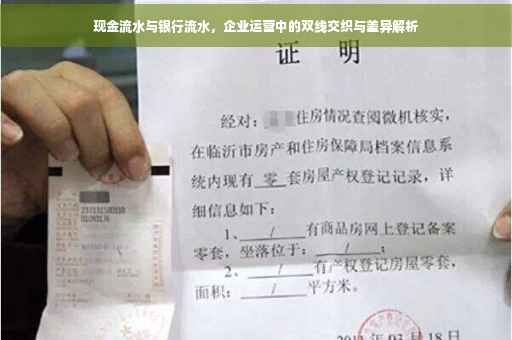 现金流水与银行流水，企业运营中的双线交织与差异解析
证 明
经对：住房情况查阅微机核实，
在临沂市房产和住房保障局档案信息系
统内现有 零 套房屋产权登记记录，详
细信息如下：
1、 / 有商品房网上登记备案
零套，坐落位于： / ；
2、 / 有产权登记房屋零套，
面积： / 平方米。
03 月 18 日